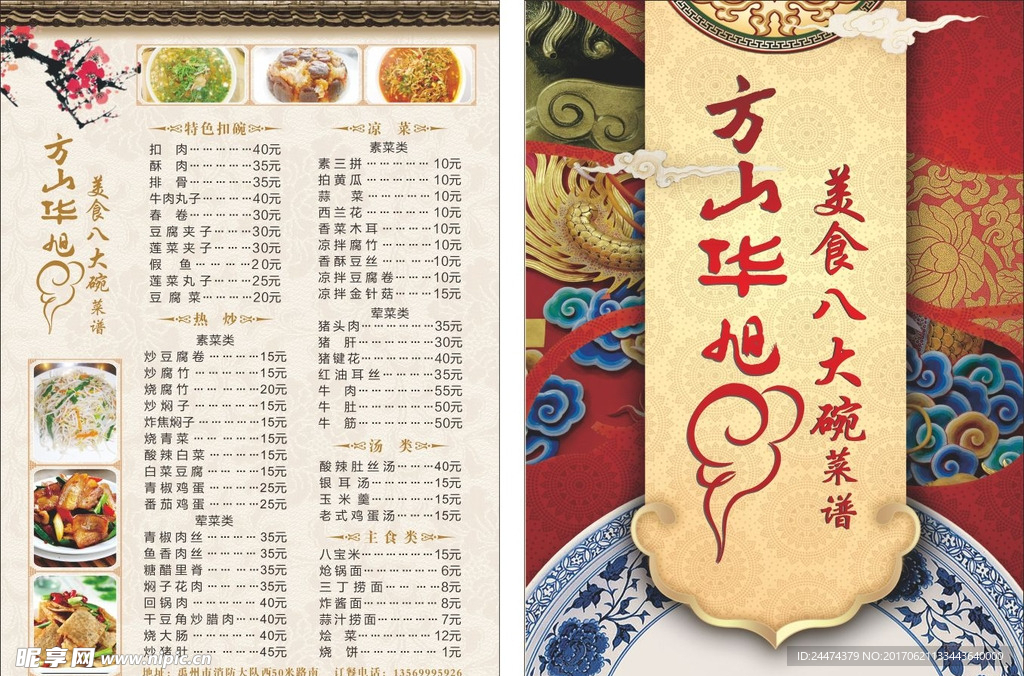 方山华旭
美食八大碗菜谱
特色扣碗
扣 肉………………40元
酥 肉………………35元
排 骨………………35元
牛肉丸子…………40元
春 卷………………30元
豆腐夹子………30元
莲菜夹子………30元
假 鱼………………20元
莲菜丸子………25元
豆腐菜……………20元
热 炒
素菜类
炒豆腐卷…………15元
炒腐竹……………15元
烧腐竹……………20元
炒焖子……………15元
炸焦焖子…………15元
烧青菜……………15元
酸辣白菜…………15元
白菜豆腐…………15元
青椒鸡蛋…………25元
番茄鸡蛋…………25元
荤菜类
青椒肉丝…………35元
鱼香肉丝…………35元
糖醋里脊…………35元
焖子花肉…………35元
回锅肉……………40元
干豆角炒腊肉……40元
烧大肠……………40元
炒猪肚……………45元
凉 菜
素菜类
素三拼……………10元
拍黄瓜……………10元
蒜 菜………………10元
西兰花……………10元
香菜木耳…………10元
凉拌腐竹…………10元
香酥豆丝…………10元
凉拌豆腐卷………10元
凉拌金针菇………15元
荤菜类
猪头肉……………35元
猪 肝………………30元
猪键花……………40元
红油耳丝…………35元
牛 肉………………55元
牛 肚………………50元
牛 筋………………50元
汤 类
酸辣肚丝汤………40元
银耳汤……………15元
玉米羹……………15元
老式鸡蛋汤………15元
主食类
八宝米……………15元
炝锅面……………6元
三丁捞面…………8元
炸酱面……………8元
蒜汁捞面…………7元
烩 菜………………12元
烧 饼………………1元
地址:禹州市消防大队西50米路南 订餐电话:13569995926
昵享网 www.nipic.cn
方山华旭
美食八大碗菜谱
ID:24474379 NO:20170621133443640000